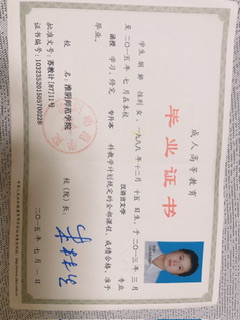 成人高等教育
毕业证书
学生 性别女,一九八八年十二月十五日生,于二〇一三年三月
至二〇一五年七月在本校 汉语言文学 专业
函授 学习,修完 专升本 科教学计划规定的全部课程,成绩合格,准予
毕业。
校名:淮阴师范学院 校(院)长:
批准文号:苏教计[87]1号
证书编号:
二〇一五年七月一日